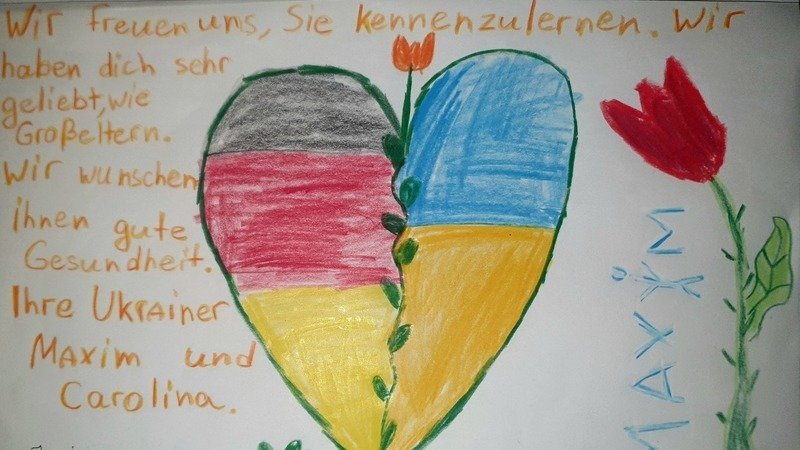 Wir freuen uns, Sie kennenzulernen. Wir
haben dich sehr
geliebt, wie
Großeltern.
Wir wunschen
ihnen gute
Gesundheit.
Ihre Ukrainer
Maxim und
Carolina.
MAXIM